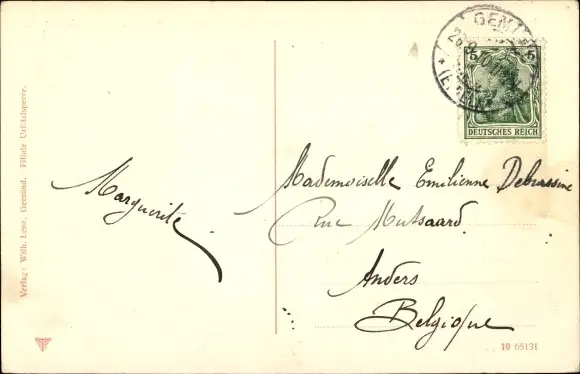 Verlag: Wilh. Lenz, Gemünd. Filiale Urfttalsperre.
Marguerite
Mademoiselle Emilienne Debussine
Rue Mutsaard
Anvers
Belgique
GEMÜND
5 5
DEUTSCHES REICH
10 65131